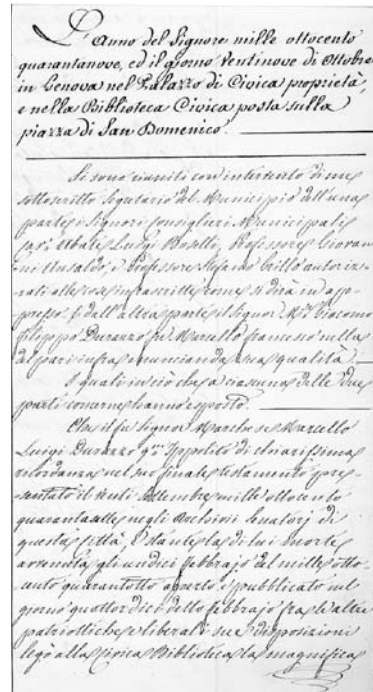 L'Anno del Signore mille ottocento
quarantanove, ed il giorno Ventinove di Ottobre
in Genova nel Palazzo di Civica proprietà,
e nella Biblioteca Civica posta sulla
piazza di San Domenico.
Si sono riuniti con intervento di me
sottoscritto Segretario del Municipio dell'una
parte i Signori Consiglieri Municipali
Abate Luigi Professore Giovan
ni Ansaldo, e Professore Stefano Grillo autoriz-
zati alle cose infrascritte come si dirà in ap-
presso, e dall'altra parte il Signor Giacomo
Filippo Durazzo fu Marcello francesco nella
del pari infra enuncianda sua qualità.
I quali in ciò che a ciascuna delle due
parti concerne hanno esposto.
Che il fu Signor Marchese Marcello
Luigi Durazzo qm Ippolito di chiarissima
ricordanza nel suo finale testamento pre-
sentato il Settembre mille ottocento
quaranta negli Archivii Senatorj di
questa Città, e stante la di lui morte
avvenuta gli undici febbrajo del mille otto-
cento quarantotto aperto e pubblicato nel
giorno quattordici detto febbrajo fra le altre
patriottiche e liberali sue disposizioni
legò alla Civica Biblioteca la magnifica